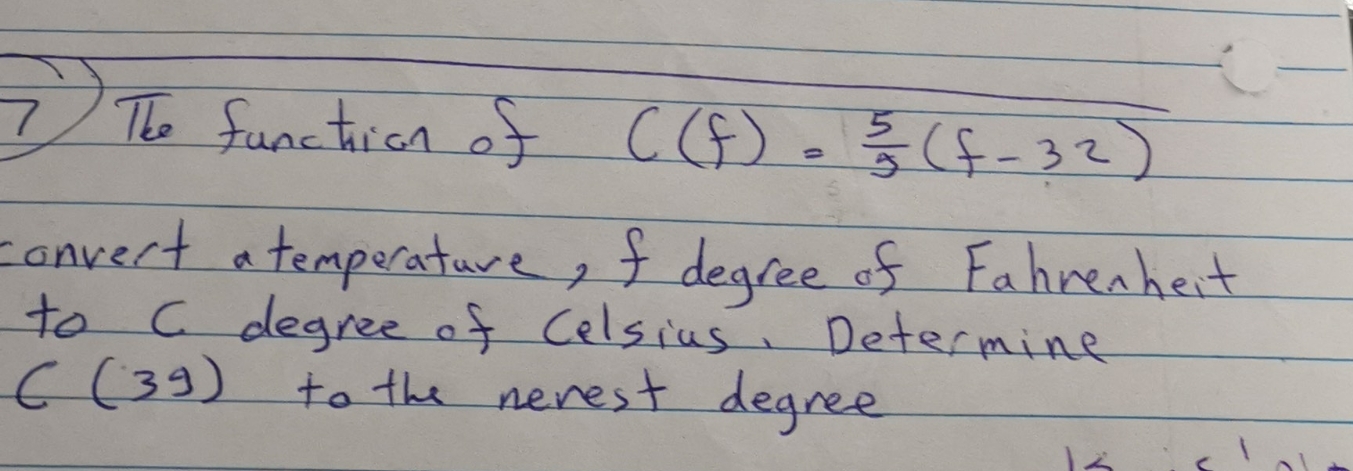 7) The function of C(f) = 5/9 (f - 32)
convert a temperature, f degree of Fahrenheit
to C degree of Celsius. Determine
C (39) to the nerest degree